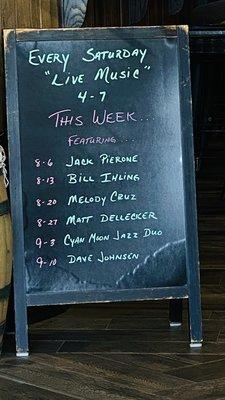 Every Saturday
"Live Music"
4-7
This Week...
Featuring...
8-6 Jack Pierone
8-13 Bill Ihling
8-20 Melody Cruz
8-27 Matt Dellecker
9-3 Cyan Moon Jazz Duo
9-10 Dave Johnsen